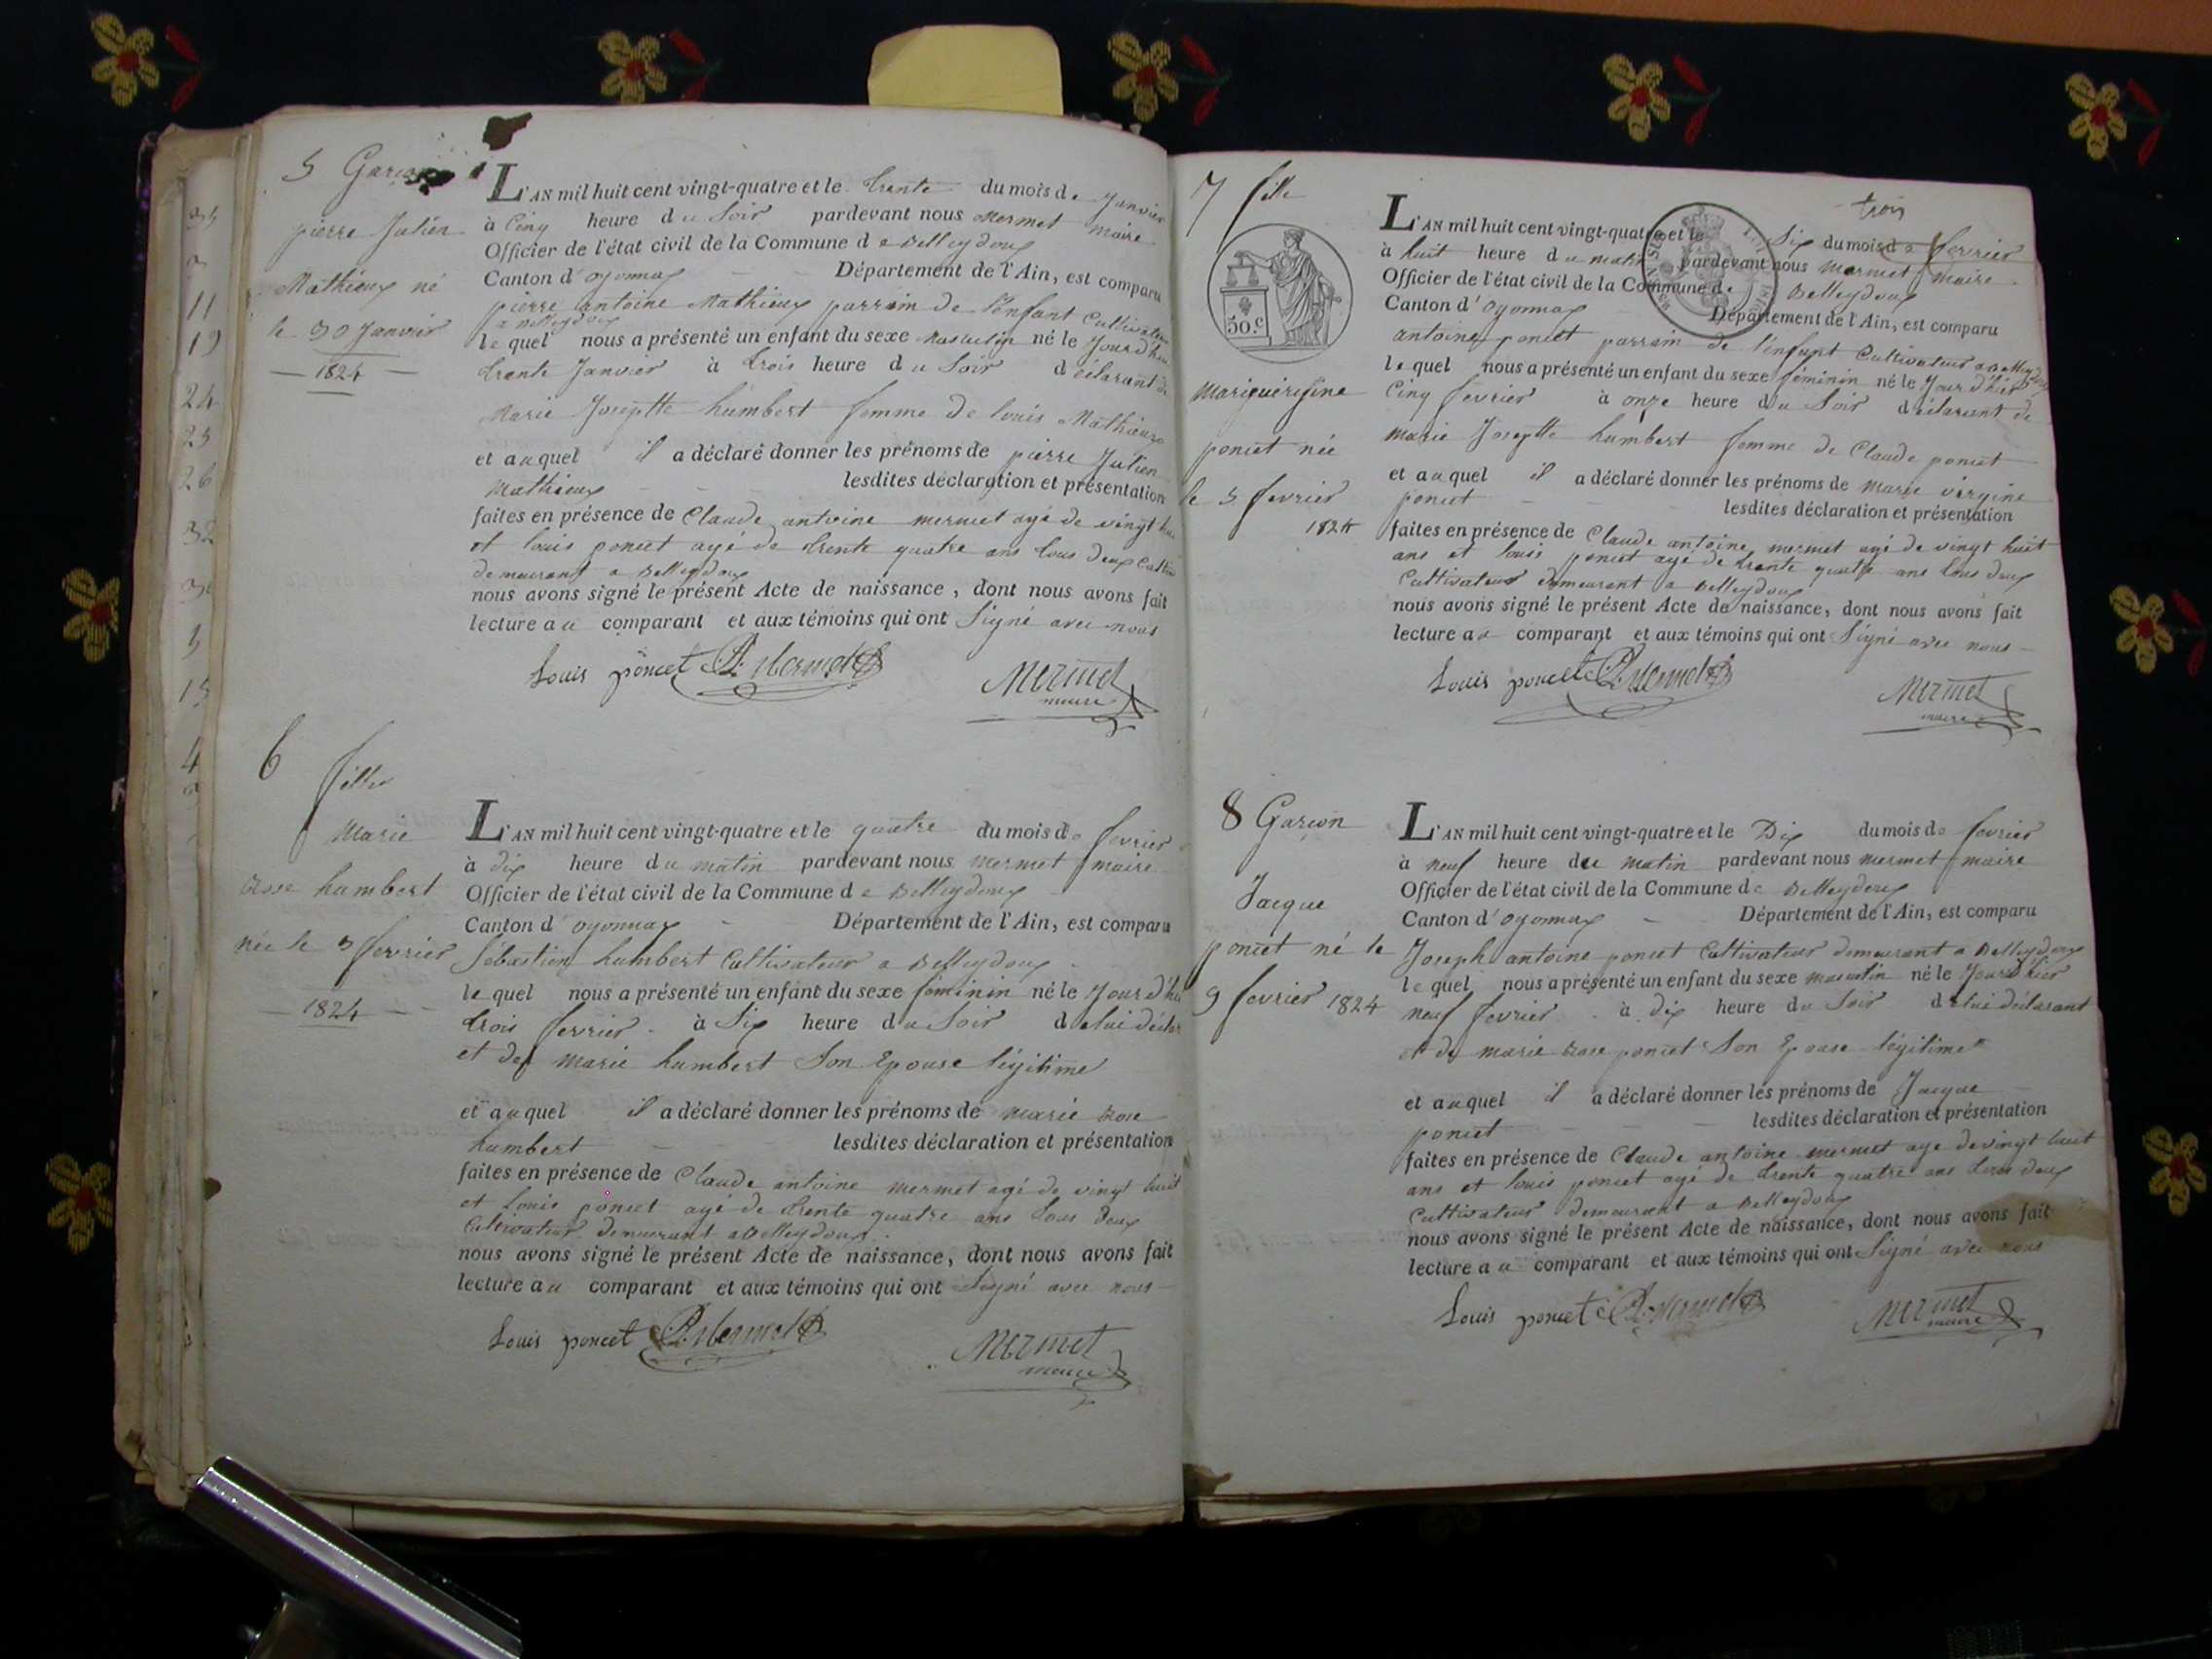 5 Garçon
pierre Julien
Mathieux né
le 30 Janvier
1824
L'AN mil huit cent vingt-quatre et le trente du mois de Janvier
à Cinq heure du Soir pardevant nous Mermet maire
Officier de l'état civil de la Commune de Belleydoux
Canton d'oyonnax Département de l'Ain, est comparu
pierre antoine Mathieux parrain de l'enfant Cultivateur
a Belleydoux
lequel nous a présenté un enfant du sexe Masculin né le Jourd'hui
trente Janvier à trois heure du Soir déclarant de
Marie Josephte humbert femme de louis Mathieux
et auquel il a déclaré donner les prénoms de pierre Julien
Mathieux lesdites déclaration et présentation
faites en présence de Claude antoine mermet agé de vingt huit
et louis poncet agé de trente quatre ans tous deux
demeurant a Belleydoux
nous avons signé le présent Acte de naissance, dont nous avons fait
lecture au comparant et aux témoins qui ont Signé avec nous
Louis poncet Mermet Mermet
maire
6
fille
Marie
Rose humbert
née le 3 fevrier
1824
L'AN mil huit cent vingt-quatre et le quatre du mois de fevrier
à dix heure du matin pardevant nous mermet maire
Officier de l'état civil de la Commune de Belleydoux
Canton d'oyonnax Département de l'Ain, est comparu
Sébastien humbert Cultivateur a Belleydoux
lequel nous a présenté un enfant du sexe féminin né le Jour d'hier
trois fevrier à Six heure du Soir de lui déclar
et de marie humbert Son Epouse légitime
et auquel il a déclaré donner les prénoms de marie Rose
humbert lesdites déclaration et présentation
faites en présence de Claude antoine mermet agé de vingt huit
et louis poncet agé de trente quatre ans tous deux
Cultivateur demeurant a Belleydoux
nous avons signé le présent Acte de naissance, dont nous avons fait
lecture au comparant et aux témoins qui ont Signé avec nous
Louis poncet Mermet Mermet
maire
trois
7 fille
50 c
poncet née
le 5 fevrier
1824
L'AN mil huit cent vingt-quatre et le Six du mois de fevrier
à huit heure du matin pardevant nous mermet maire
Officier de l'état civil de la Commune de Belleydoux
Canton d'oyonnax Département de l'Ain, est comparu
antoine poncet parrain de l'enfant Cultivateur a Belleydoux
lequel nous a présenté un enfant du sexe féminin né le Jour d'hier
Cinq fevrier à onze heure du Soir déclarant de
marie Josephte humbert femme de Claude poncet
et auquel il a déclaré donner les prénoms de marie virgine
poncet lesdites déclaration et présentation
faites en présence de Claude antoine mermet agé de vingt huit
ans et louis poncet agé de trente quatre ans tous deux
Cultivateur demeurant a Belleydoux
nous avons signé le présent Acte de naissance, dont nous avons fait
lecture au comparant et aux témoins qui ont Signé avec nous
Louis poncet Mermet Mermet
maire
8 Garçon
Jacque
poncet né le
9 fevrier 1824
L'AN mil huit cent vingt-quatre et le Dix du mois de fevrier
à neuf heure du matin pardevant nous mermet maire
Officier de l'état civil de la Commune de Belleydoux
Canton d'oyonnax Département de l'Ain, est comparu
Joseph antoine poncet Cultivateur demeurant a Belleydoux
lequel nous a présenté un enfant du sexe masculin né le Jour d'hier
neuf fevrier à dix heure du Soir de lui déclarant
et de marie Rose poncet Son Epouse légitime
et auquel il a déclaré donner les prénoms de Jacque
poncet lesdites déclaration et présentation
faites en présence de Claude antoine mermet age de vingt huit
ans et louis poncet agé de trente quatre ans tous deux
Cultivateur demeurant a Belleydoux
nous avons signé le présent Acte de naissance, dont nous avons fait
lecture au comparant et aux témoins qui ont Signé avec nous
Louis poncet Mermet Mermet
maire